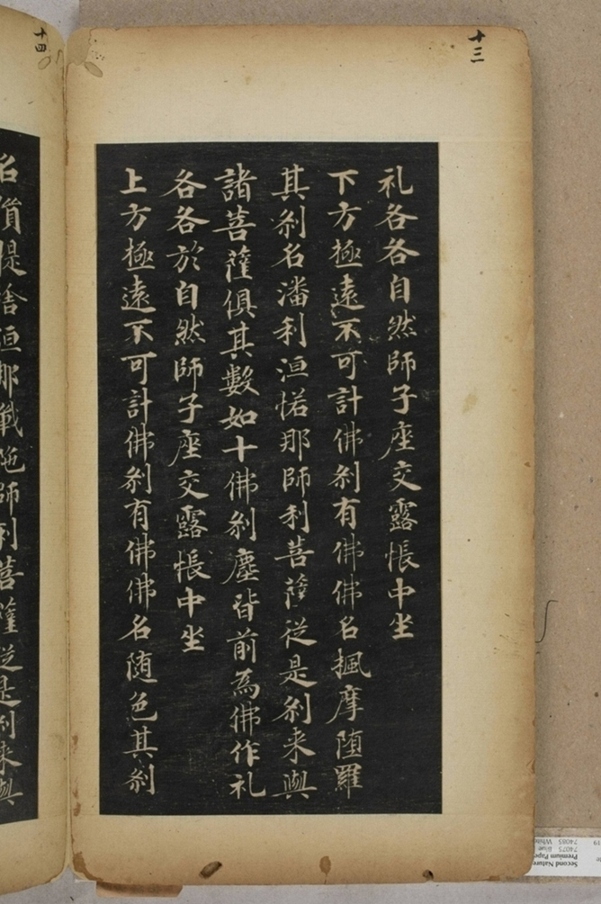 十三
礼各各自然師子座交露帳中坐
下方極遠不可計佛刹有佛佛名楓摩堕羅
其刹名潘利洹㤩那師利菩薩従是刹来與
諸菩薩俱其數如十佛刹塵皆前為佛作礼
各各於自然師子座交露帳中坐
上方極遠不可計佛刹有佛佛名随色其刹
十四
名質提捨洹那戰陁師利菩薩従是刹来與
Second Nature
Premium Pape
74075 Blue
74085 White